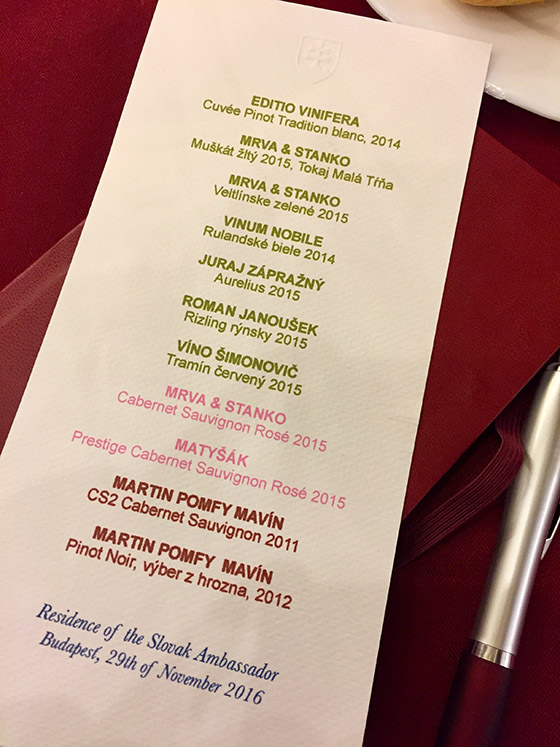 EDITIO VINIFERA
Cuvée Pinot Tradition blanc, 2014
MRVA & STANKO
Muškát žltý 2015, Tokaj Malá Tŕňa
MRVA & STANKO
Veltlínske zelené 2015
VINUM NOBILE
Rulandské biele 2014
JURAJ ZÁPRAŽNÝ
Aurelius 2015
ROMAN JANOUŠEK
Rizling rýnsky 2015
VÍNO ŠIMONOVIČ
Tramín červený 2015
MRVA & STANKO
Cabernet Sauvignon Rosé 2015
MATYŠÁK
Prestige Cabernet Sauvignon Rosé 2015
MARTIN POMFY MAVÍN
CS2 Cabernet Sauvignon 2011
MARTIN POMFY MAVÍN
Pinot Noir, výber z hrozna, 2012
Residence of the Slovak Ambassador
Budapest, 29th of November 2016